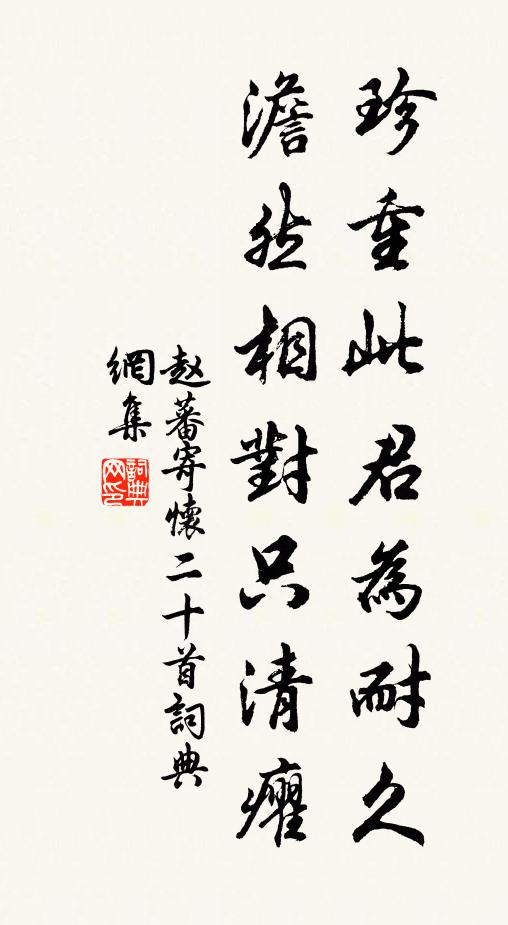 珍重此君為耐久
澹然相對只清癯
赵蕃寄懷二十首詞典
網集
詞典
网印